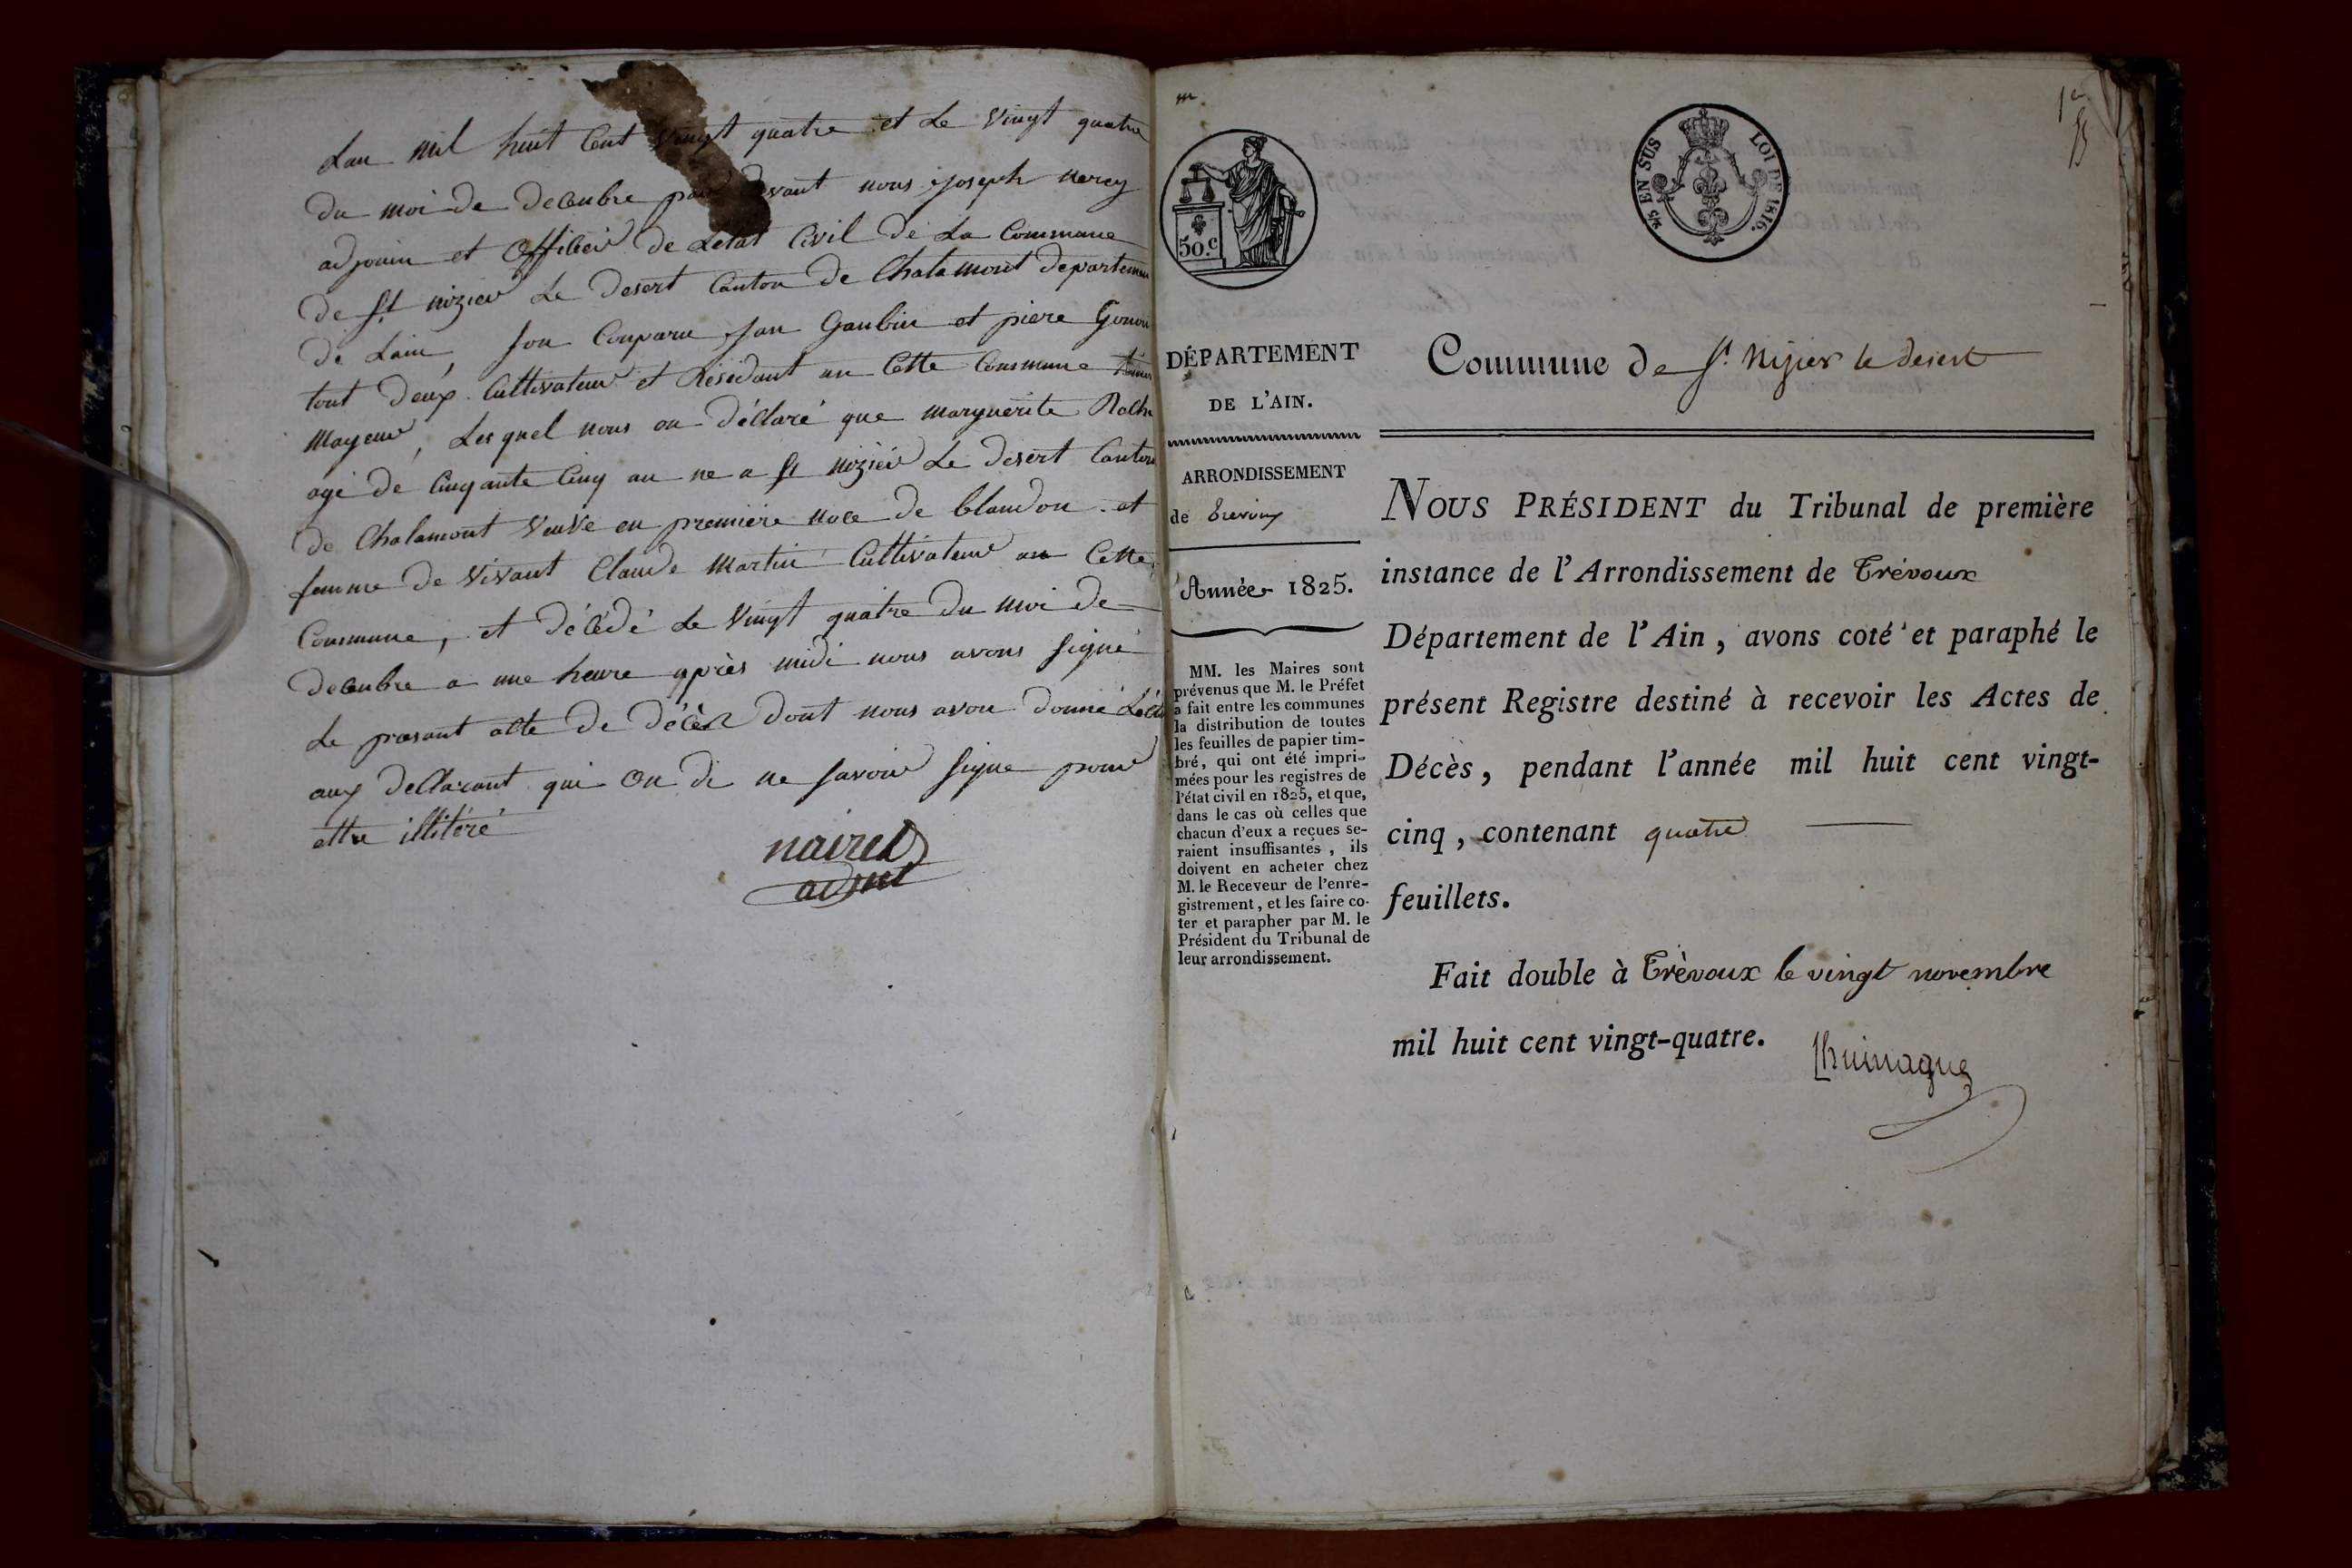 Lan mil huit Cent Vingt quatre et Le Vingt quatre
du moi de decenbre par devant nous joseph nerey
adjouin et officier de Letat Civil de La Commune
de St nizier Le desert Canton de Chalamont departemen
de Lain, son Conparu jan Gaubin et piere Gonon
tout deux Cultivateur et Résidant an Cette Commune
mayeur, Les quel nous on déclaré que marguerite Roche
agé de Cinqante Cinq an ne a St nizier Le desert Canton
de Chalamont Veuve en premiere noce de blandon et
femme de Vivant Claude martin Cultivateur an Cette
Commune, et décédé Le Vingt quatre du moi de
decenbre a une heure après midi nous avons signé
Le presant acte de décès dont nous avon donné
aux declarant qui on di ne savoir signe pour
ettre illiteré
nairet
adjoint
50.c
*45 EN SUS
LOI DE 1816.
1er
DÉPARTEMENT
DE L'AIN.
ARRONDISSEMENT
de Trevoux
Année 1825.
MM. les Maires sont
prévenus que M. le Préfet
a fait entre les communes
la distribution de toutes
les feuilles de papier tim-
bré, qui ont été impri-
mées pour les registres de
l'état civil en 1825, et que,
dans le cas où celles que
chacun d'eux a reçues se-
raient insuffisantes, ils
doivent en acheter chez
M. le Receveur de l'enre-
gistrement, et les faire co-
ter et parapher par M. le
Président du Tribunal de
leur arrondissement.
Commune de St. Nizier le desert
NOUS PRÉSIDENT du Tribunal de première
instance de l'Arrondissement de Trévoux
Département de l'Ain, avons coté et paraphé le
présent Registre destiné à recevoir les Actes de
Décès, pendant l'année mil huit cent vingt-
cinq, contenant quatre
feuillets.
Fait double à Trèvoux le vingt novembre
mil huit cent vingt-quatre.